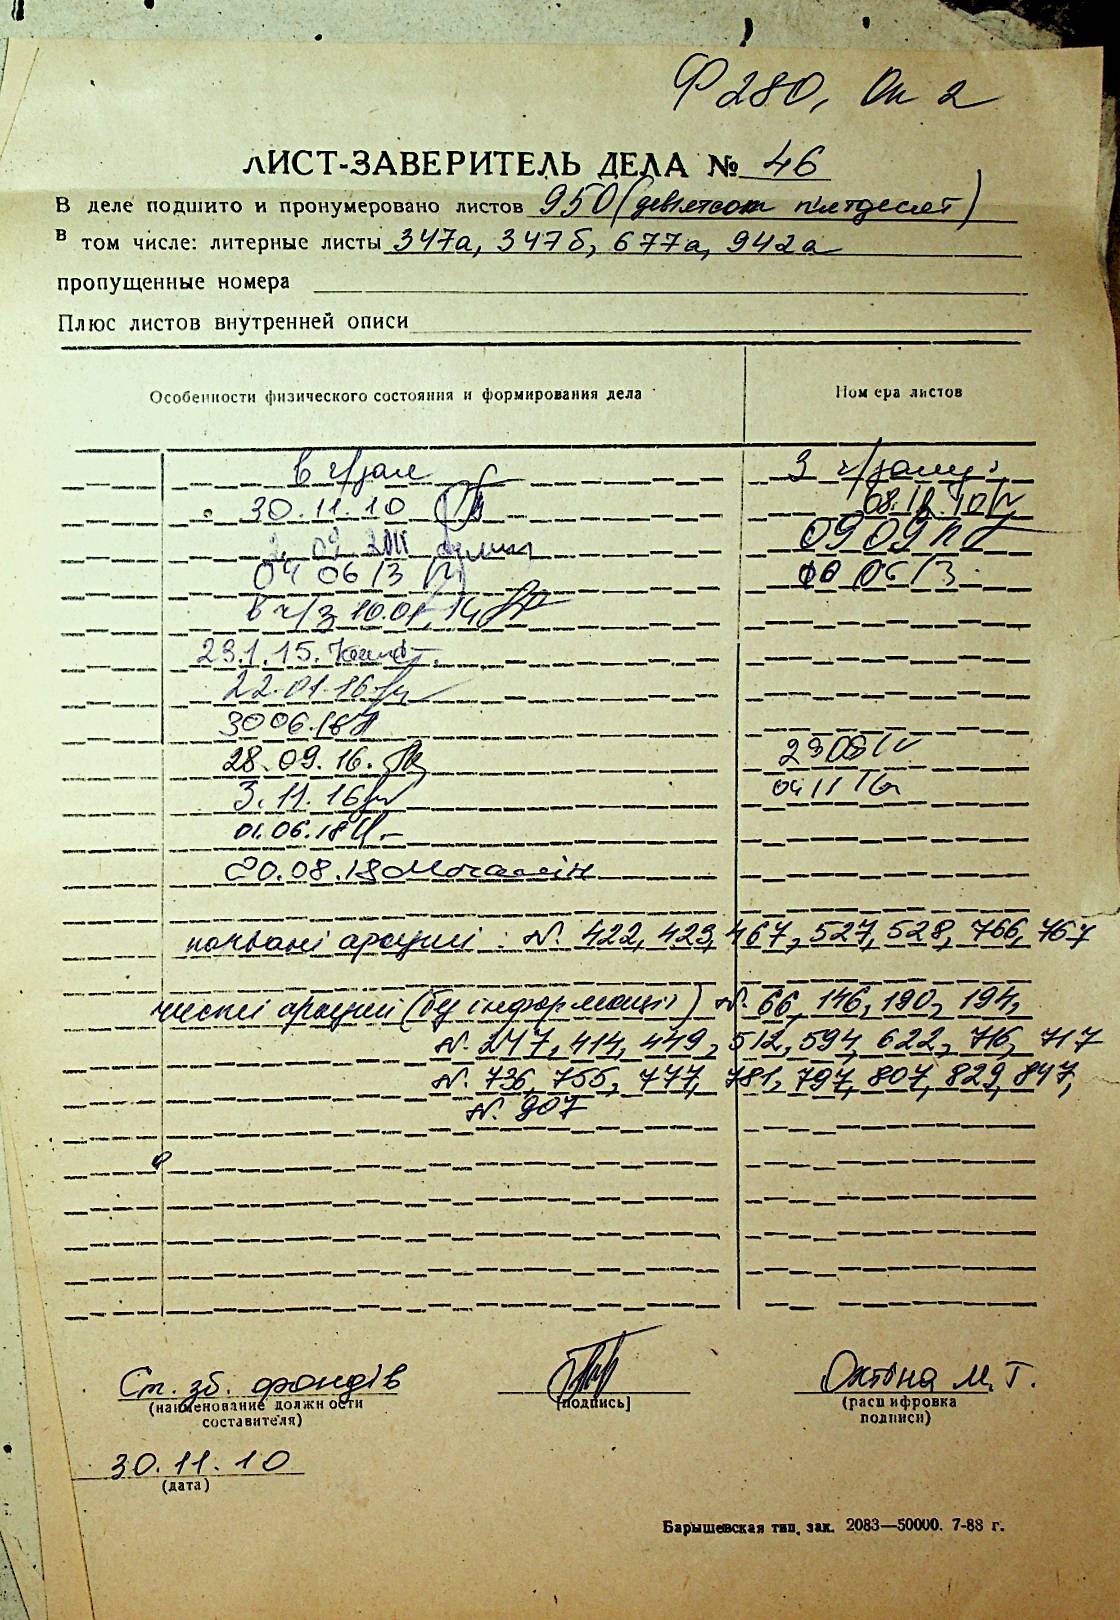 Ф 280, Оп 2
ЛИСТ-ЗАВЕРИТЕЛЬ ДЕЛА № 46
В деле подшито и пронумеровано листов 950 (дев'ятсот п'ятдесят)
в том числе: литерные листы 347а, 347б, 677а, 942а
пропущенные номера
Плюс листов внутренней описи
Особенности физического состояния и формирования дела Номера листов
в ч/зал З ч/залу:
30.11.10 08.12.10
2.09.2011 09 09 11
04 06 13 10 06 13
в ч/з 10.01.14
23.1.15.
22.01.16
30 06.16
28.09.16. 23 08
3.11.16 04 11 16
01.06.18
20.08.18
порвані аркуші: №. 422, 423, 467, 527, 528, 766, 767
чисті аркуші (без інформації) №. 66, 146, 190, 194,
№. 247, 414, 449, 512, 594, 622, 716, 717
№. 736, 755, 777, 781, 797, 807, 829, 847,
№. 907
Ст. зб. фондів Октіна М. Г.
(наименование должности составителя) [подпись] (расшифровка подписи)
30.11.10
(дата)
Барышевская тип. зак. 2083—50000. 7-88 г.